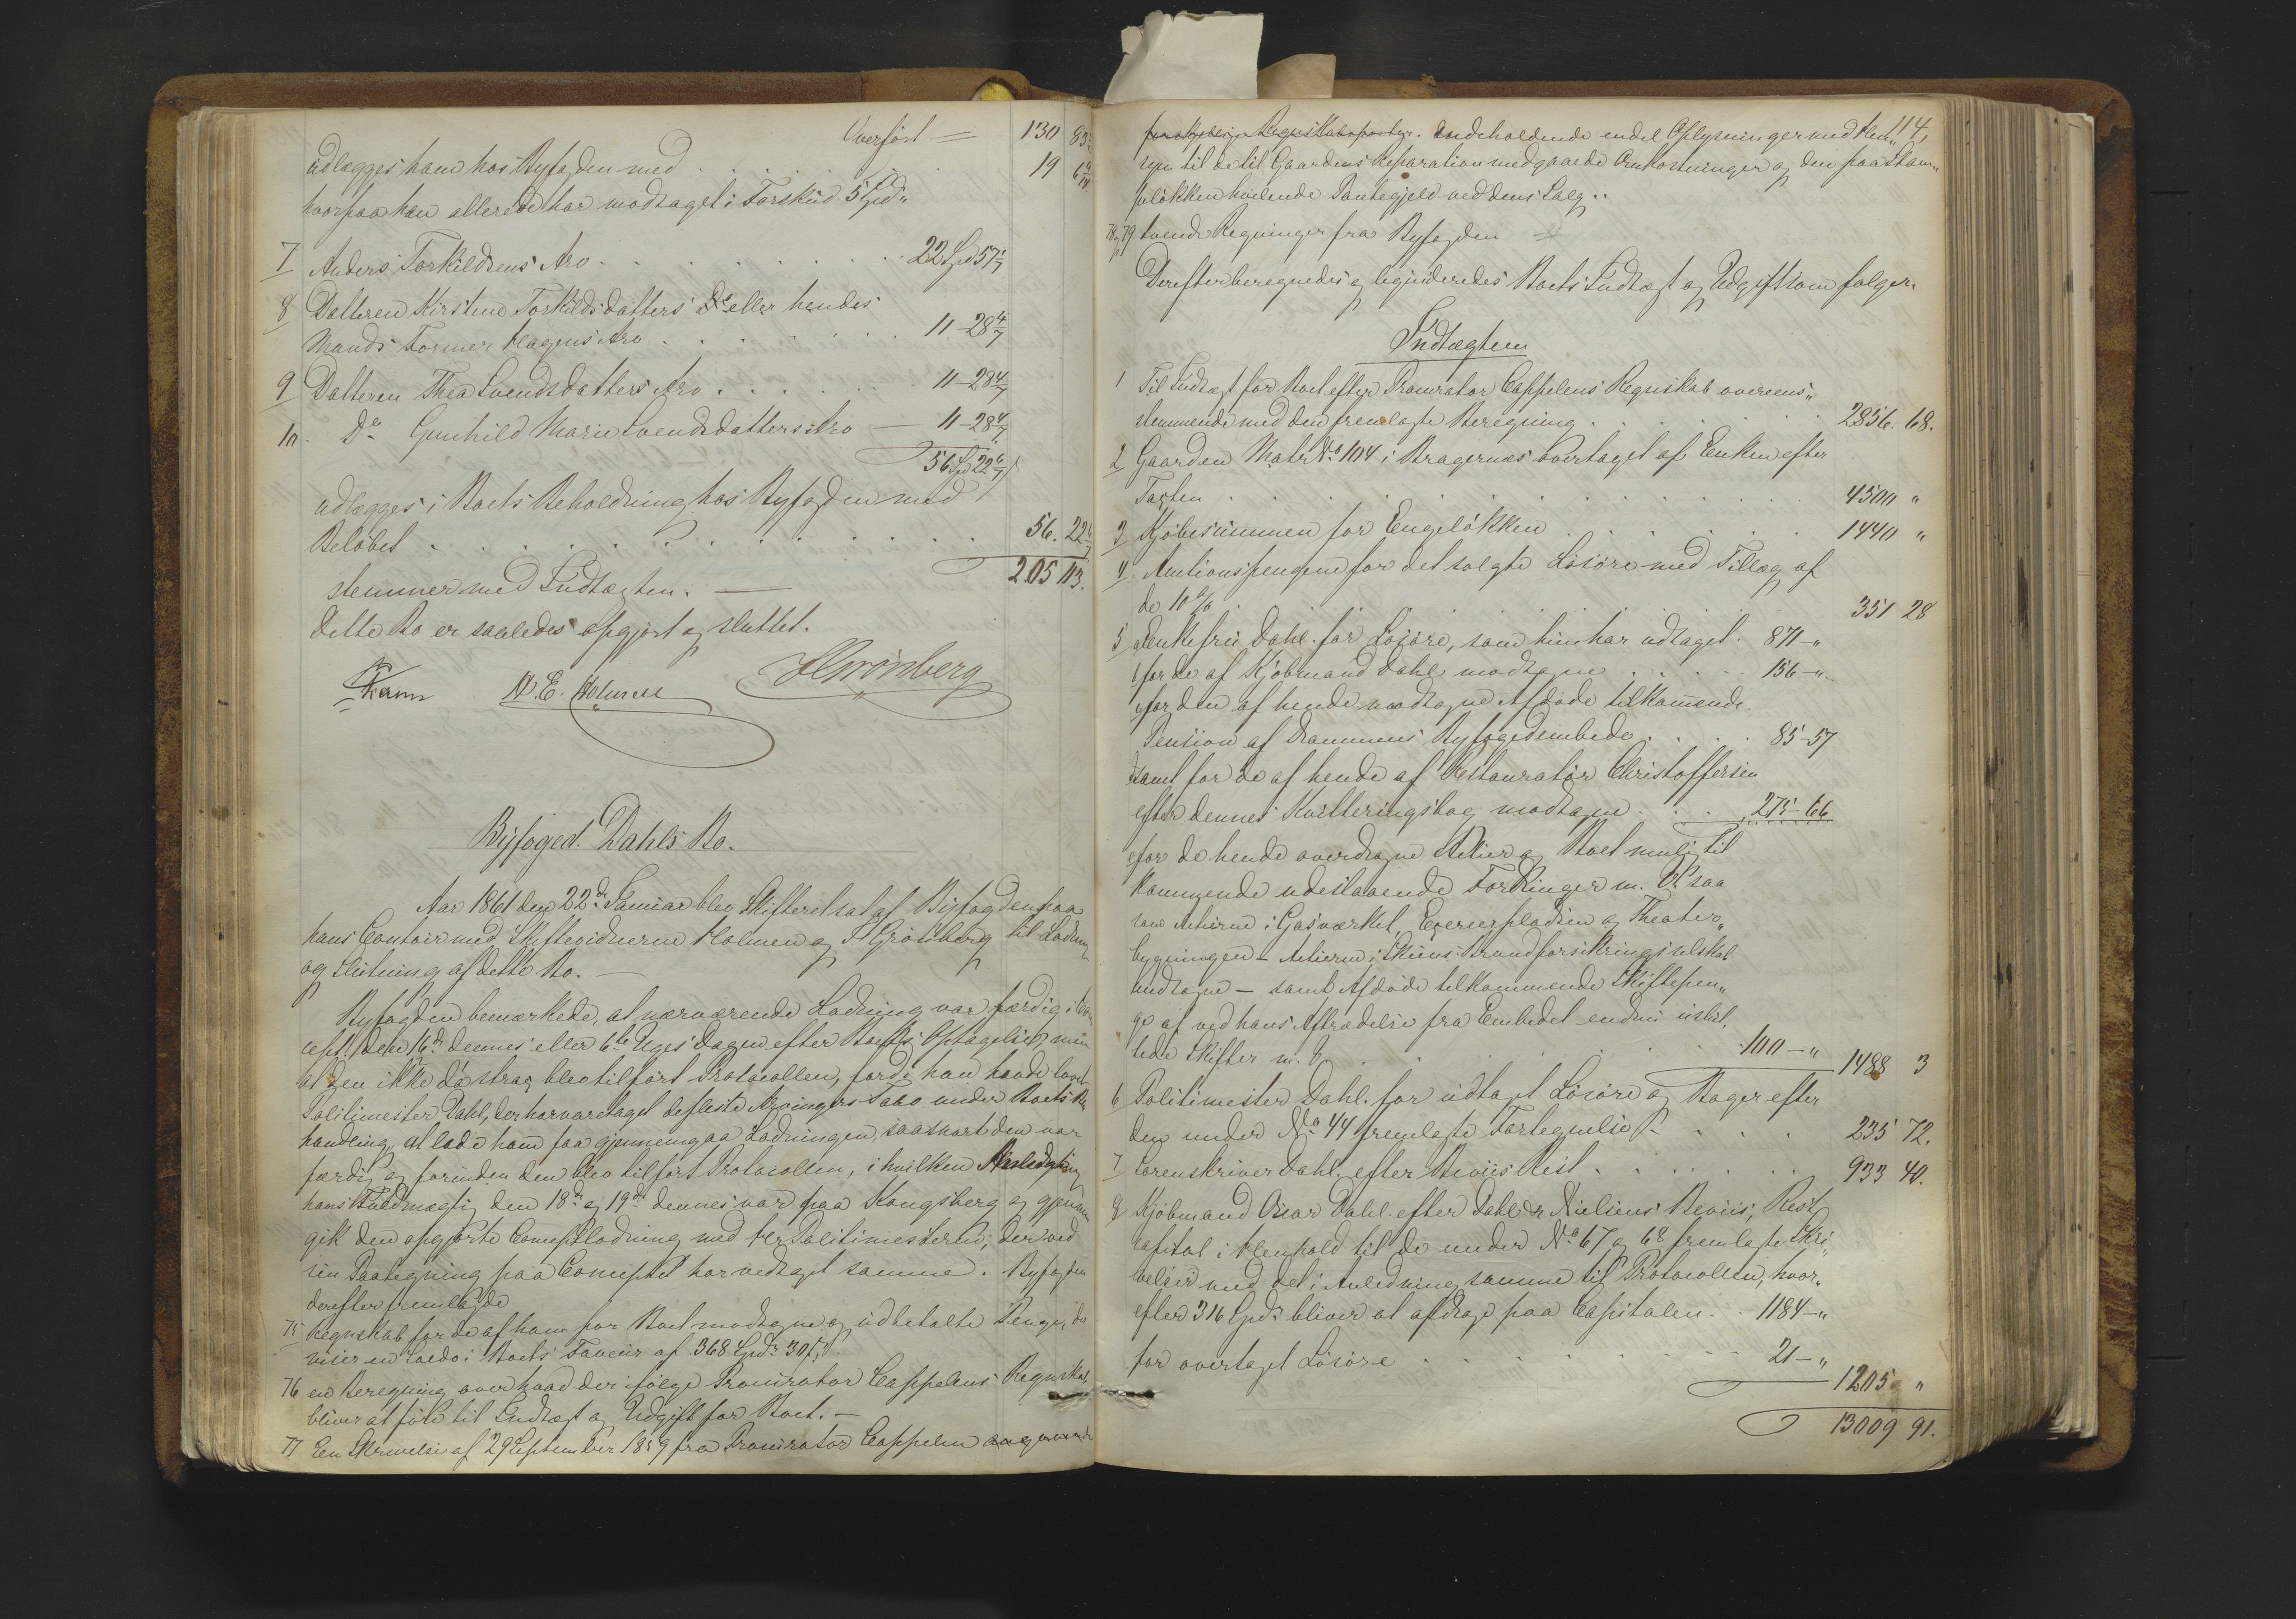 Overført = 130 83
udlægges ham hos Byfogden med . . . . . 19 6
hvorpaa han allerede har modtaget i Forskud 5 Spd"
7 Anders Torkildsens Arv . . . . . . 22 Spd 57 1/7
8 Datteren Kirstine Torkildsdatters Do eller hendes
Mands Former Hagens Arv . . . . . . 11-28 4/7
9 Datteren Thea Svendsdatters Arv . . . . . 11-28 4/7
10. Do Gunhild Marie Svendsdatters Arv — 11-28 4/7
56 Spd 22 6/7
udlægges i Boets Beholdning hos Byfogden med
Beløbet . . . . . . . . . . . 56. 22 6/7
205 113.
stemmer med Indtægten. —
Dette Bo er saaledes opgjort og sluttet.
N. E. Holmen HGrønberg
Byfoged Dahls Bo.
Aar 1861 den 22de Januar blev Skifteret sat af Byfogden paa
hans Contoir med Skiftevidnerne Holmen og Grønberg til Lodning
og Slutning af dette Bo. —
Byfogden bemærkede, at nærværende Lodning var færdig i Con
cept den 16de dennes eller 6te Uges Dagen efter Boets Optagelse, men
at den ikke da strax blev tilført Protocollen, fordi han havde lovet
Politimester Dahl, der har varetaget de fleste Arvingers Tarv under Boets Be
handling, at lade ham faa gjennemgaa Lodningen, saasnart den var
færdig og forinden den blev tilført Protocollen, i hvilken Anledning
hans Fuldmægtig den 18de og 19de dennes var paa Kongsberg og gjennem
gik den opgjorte Conceptlodning med Hr Politimesteren, der ved
sin Paategning paa Conceptet har vedtaget samme. Byfogden
derefter fremlagde
75 Regnskab for de af ham for Boet modtagne og udbetalte Penge, der
viser en Saldo i Boets Faveur af 368 Spd 30 ß.
76 en Beregning over hvad der ifølge Procurator Cappelens Regnskab
bliver at føre til Indtægt og Udgift for Boet. —
77 En Skrivelse af 29 September 1859 fra Procurator Cappelen
114.
forskjellige Regnskabsposter. Indeholdende endel Oplysninger med Hen„
syn til de til Gaardens Reparation medgaaede Omkostninger og den paa
løkken hvilende Pantegjeld ved dens Salg..
78 og 79 tvende Regninger fra Byfogden
Derefter beregnedes og liqvideredes Boets Indtægt og Udgift som følger.
Indtægten
1 Til Indtægt for Boet efter Procurator Cappelens Regnskab overens„
stemmende med den fremlagte Beregning . . . . . 2856. 68.
2 Gaarden Matr No 104 i Bragernæs overtaget af Enken efter
Taxten . . . . . . . . . . . 4500 "
3 Kjøbesummen for Engeløkken . . . . . . 1440 "
4 Auctionspengene for det solgte Løsøre med Tillæg af
de 10 % . . . . . . . . . . 351 28
5 a Enkefru Dahl for Løsøre, som hun har udtaget . 871-"
b for de af Kjøbmand Dahl modtagne . . . . . 156-"
c for den af hende modtagne Afdøde tilkommende
Pension af Drammens Byfogedembede . . . . 85-57
d samt for de af hende af Restauratør Christoffersen
efter dennes Kvitteringsbog modtagne . . . 275-66
e for de hende overdragne Actier og Boet mulig til
kommende udestaaende Fordringer m. V. saa
som Actierne i Gasværket, Exerceerpladsen og Theater„
bygningen – Actierne i Skiens Brandforsikringsselskab
undtagne – samt Afdøde tilkommende Skiftepen„
ge af ved hans Aftrædelse fra Embedet endnu uslut„
tede Skifter m. V. . . . . . . . 100-" 1488 3
6 Politimester Dahl for udtaget Løsøre og Bøger efter
den under No 44 fremlagte Fortegnelse . . . . 235 72.
7 Sorenskriver Dahl efter Beviis Rest . . . . . . 933 40.
8 Kjøbmand Oscar Dahl efter Dahl & Nielsens Beviis, Rest
capital i Henhold til de under No 67 og 68 fremlagte Skri„
velser med det i Anledning samme til Protocollen, hvor„
efter 316 Spdr bliver at afdrage paa Capitalen . . 1184-"
for overtaget Løsøre . . . . . . . . 21-"
1205 "
13009 91.